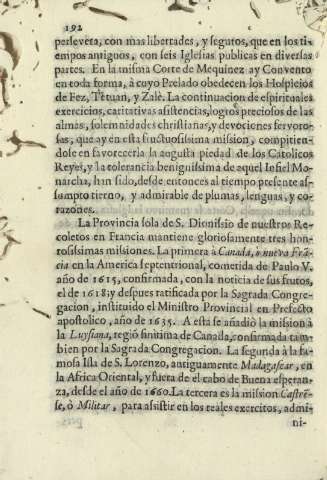 192
persevera, con mas libertades, y seguros, que en los ti-
empos antiguos, con seis Iglesias publicas en diversas
partes. En la misma Corte de Mequinez ay Convento
en toda forma, à cuyo Prelado obedecen los Hospicios
de Fez, Tètuan, y Zalè. La continuacion de espirituales
exercicios, caritativas asistencias, logros preciosos de las
almas, solemnidades christianas, y devociones fervoro-
sas, que ay en esta fructuosissima mission, compitien-
dose en favorecerla la augusta piedad de los Catolicos
Reyes, y la tolerancia benignissima de aquel Infiel Mo-
narcha, han sido, desde entonces al tiempo presente as-
sumpto tierno, y admirable de plumas, lenguas, y co-
razones.
La Provincia sola de S. Dionissio de nuestros Re-
coletos en Francia mantiene gloriosamente tres hon-
rosissimas missiones. La primera à Canada, ò nueva Frã-
cia en la America septentrional, cometida de Paulo V.
año de 1615, confirmada, con la noticia de sus frutos,
el de 1618; y despues ratificada por la Sagrada Congre-
gacion, instituido el Ministro Provincial en Prefecto
apostolico, año de 1635. A esta se añadiò la mission à
la Luysiana, regiõ finitima de Canada, confirmada tam-
bien por la Sagrada Congregacion. La segunda à la fa-
mosa Isla de S. Lorenzo, antiguamente Madagascar, en
la Africa Oriental, y fuera de el cabo de Buena esperan-
za, desde el año de 1660. La tercera es la mission Castrẽ-
se, ò Militar, para assistir en los reales exercitos, admi-
ni-